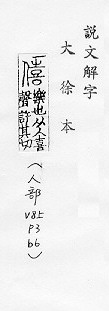 說文解字
大徐本
僖
樂也从人喜
聲許其切
(人部
v8.5
p3
b6)